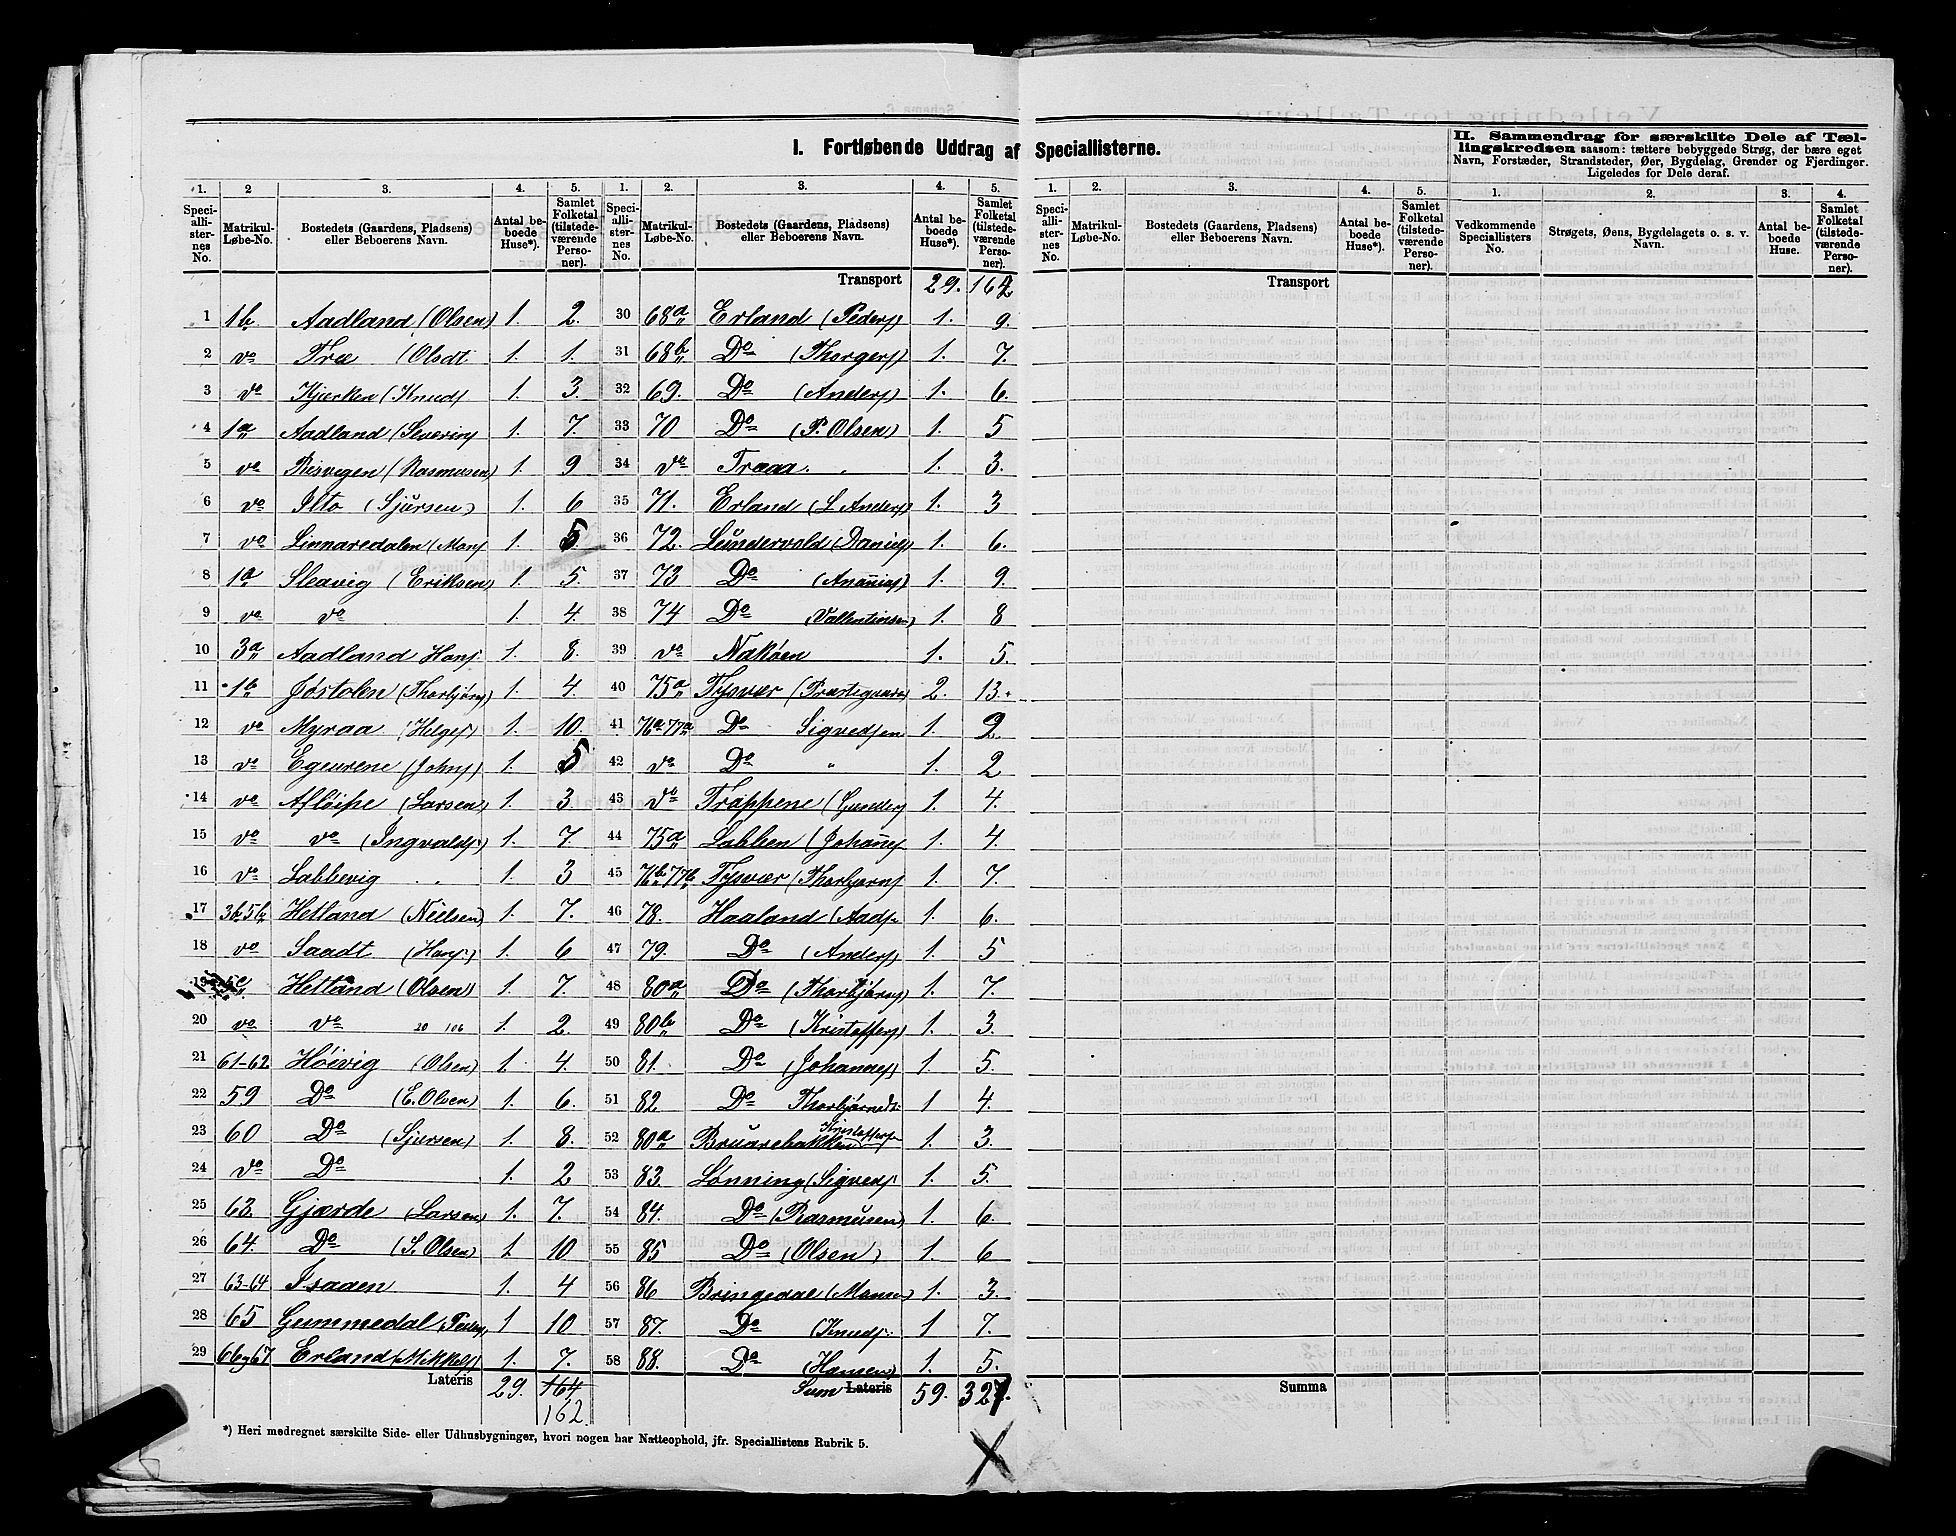 I. Fortløbende Uddrag af Speciallisterne.
II. Sammendrag for særskilte Dele af Tællingskredsen saasom: tættere bebyggede Strøg, der bære eget
Navn, Forstæder, Strandsteder, Øer, Bygdelag, Grender og Fjerdinger.
Ligeledes for Dele deraf.
1. 2 3. 4. 5. 1. 2. 3. 4. 5. 1. 2. 3. 4. 5. 1. 2. 3. 4.
Speciallisternes No. Matrikul-Løbe-No. Bostedets (Gaardens, Pladsens) eller Beboerens Navn. Antal beboede Huse*). Samlet Folketal (tilstedeværende Personer).
Speciallisternes No. Matrikul-Løbe-No. Bostedets (Gaardens, Pladsens) eller Beboerens Navn. Antal beboede Huse*). Samlet Folketal (tilstedeværende Personer).
Speciallisternes No. Matrikul-Løbe-No. Bostedets (Gaardens, Pladsens) eller Beboerens Navn. Antal beboede Huse*). Samlet Folketal (tilstedeværende Personer).
Vedkommende Speciallisters No. Strøgets, Øens, Bygdelagets o. s. v. Navn. Antal beboede Huse. Samlet Folketal (tilstedeværende Personer).
1 1b Aadland (Olsen) 1. 2.
2 do Træ (Olsdt 1. 1.
3 do Kjærken (Knuds 1. 3.
4 1a Aadland (Severins 1. 7.
5 do Risvigen (Rasmusen) 1. 9
6 do Ilto (Sjursen) 1. 6
7 do Linnaredalen (Mons 1. 5.
8 1a Sleavig (Eriksen) 1. 5.
9 do do 1. 4.
10 3a Aadland Hans. 1. 8.
11 1b Jøstolen (Thorbjørns) 1. 4.
12 do Myraa (Helges) 1. 10.
13 do Egeurene (Johns) 1. 5
14 do Afløipe (Larsen) 1. 3.
15 do do (Ingvalds.) 1. 7.
16 do Labbevig 1. 3
17 3b, 5b Hetland (Nielsen) 1. 7.
18 do Saadt (Hans.) 1. 6
19 Hetland (Olsen) 1. 7.
20 do do 20 106 1. 2.
21 61-62 Høivig (Olsen) 1. 4.
22 59 Do (E. Olsen) 1. 6.
23 60 Do (Sjursen) 1. 8.
24 do Do 1. 2
25 63. Gjærde (Larsen) 1. 7.
26 64. Do (S. Olsen) 1 10
27 63-64 Isaaen 1. 4
28 65 Gummedal 1 10
29 66,67 Erland (Mikkels) 1. 7.
Lateris 29. 164
162.
Transport 29. 162
30 68a Erland (Peders) 1. 9.
31 68b Do (Thorgers) 1. 7.
32 69. Do (Anders) 1. 6.
33 70 Do (P. Olsen) 1. 5
34 do Træaa. 1. 3.
35 71. Erland (L Anders) 1. 3
36 72. Lundervold (Daniels) 1. 6.
37 73 Do (Ananias) 1. 9.
38 74 Do (Vallentinsen) 1. 8
39 do Nakøen 1. 5.
40 75a Tysvær (Præstegaard 2. 13.
41 76a 77a Do Sigvedsen 1. 2
42 do Do " 1. 2
43 do Trappene (Gunders 1. 4.
44 75a Labben (Johans 1. 4.
45 76b 77b Tysvær (Thorbjørns 1. 7.
46 78. Haaland (Aads. 1. 6.
47 79. Do (Anders) 1. 5
48 80a Do (Thorbjørns) 1. 7.
49 80b Do (Kristoffers) 1. 3.
50 81. Do (Johannes) 1. 5
51 82 Do Thorbjørnsd. 1 4.
52 80a Bruarebakken Kristoffersen 1 3.
53 83. Lønning (Sigveds. 1. 5.
54 84. Do (Rasmusen) 1. 6.
55 85 Do (Olsen) 1. 6
56 86 Bringedal (Monsen) 1. 3.
57 87. Do (Knuds. 1 7.
58 88. Do (Hansen) 1. 5.
Sum Lateris 59. 327.
Transport
Summa
*) Heri medregnet særskilte Side- eller Udhusbygninger, hvori nogen har Natteophold, jfr. Speciallistens Rubrik 5.